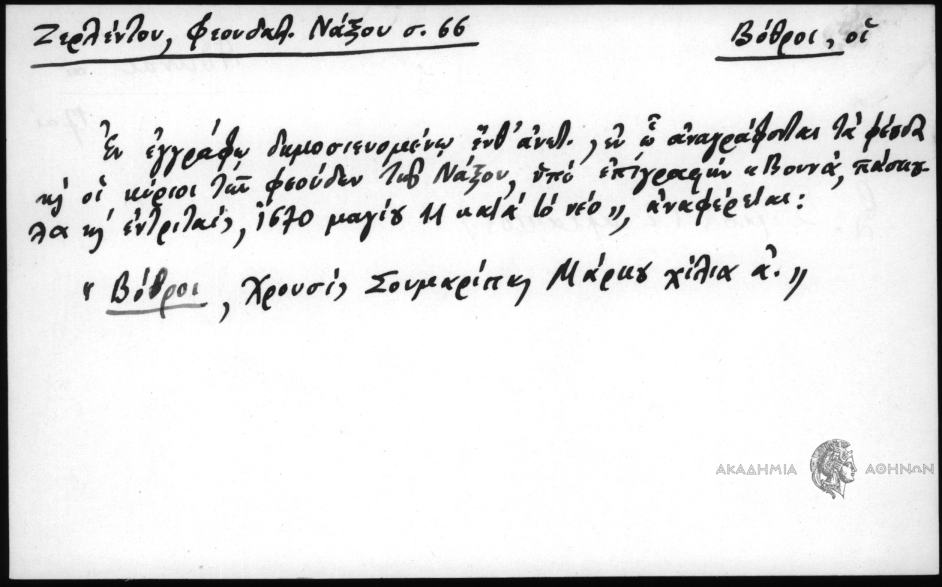 Ζερλέντου, Φεουδατ. Νάξου σ. 66
Βόθροι, οἱ
Ἐν ἐγγράφῳ δημοσιευομένῳ ἔνθ' ἀνωτ., ἐν ᾧ ἀναγράφονται τὰ φέουδα
κ̣ οἱ κύριοι τῶν φεούδων τῆς Νάξου, ὑπὸ ἐπιγραφὴν «Βουνά, πάσκου-
λα κ̣ ἐντριταίς, 1670 μαγίου 11 κατὰ τὸ νέο», ἀναφέρεται:
"Βόθροι, Χρουσῆς Σουμαρίπας Μάρκου χίλια ἀ."
ΑΚΑΔΗΜΙΑ ΑΘΗΝΩΝ